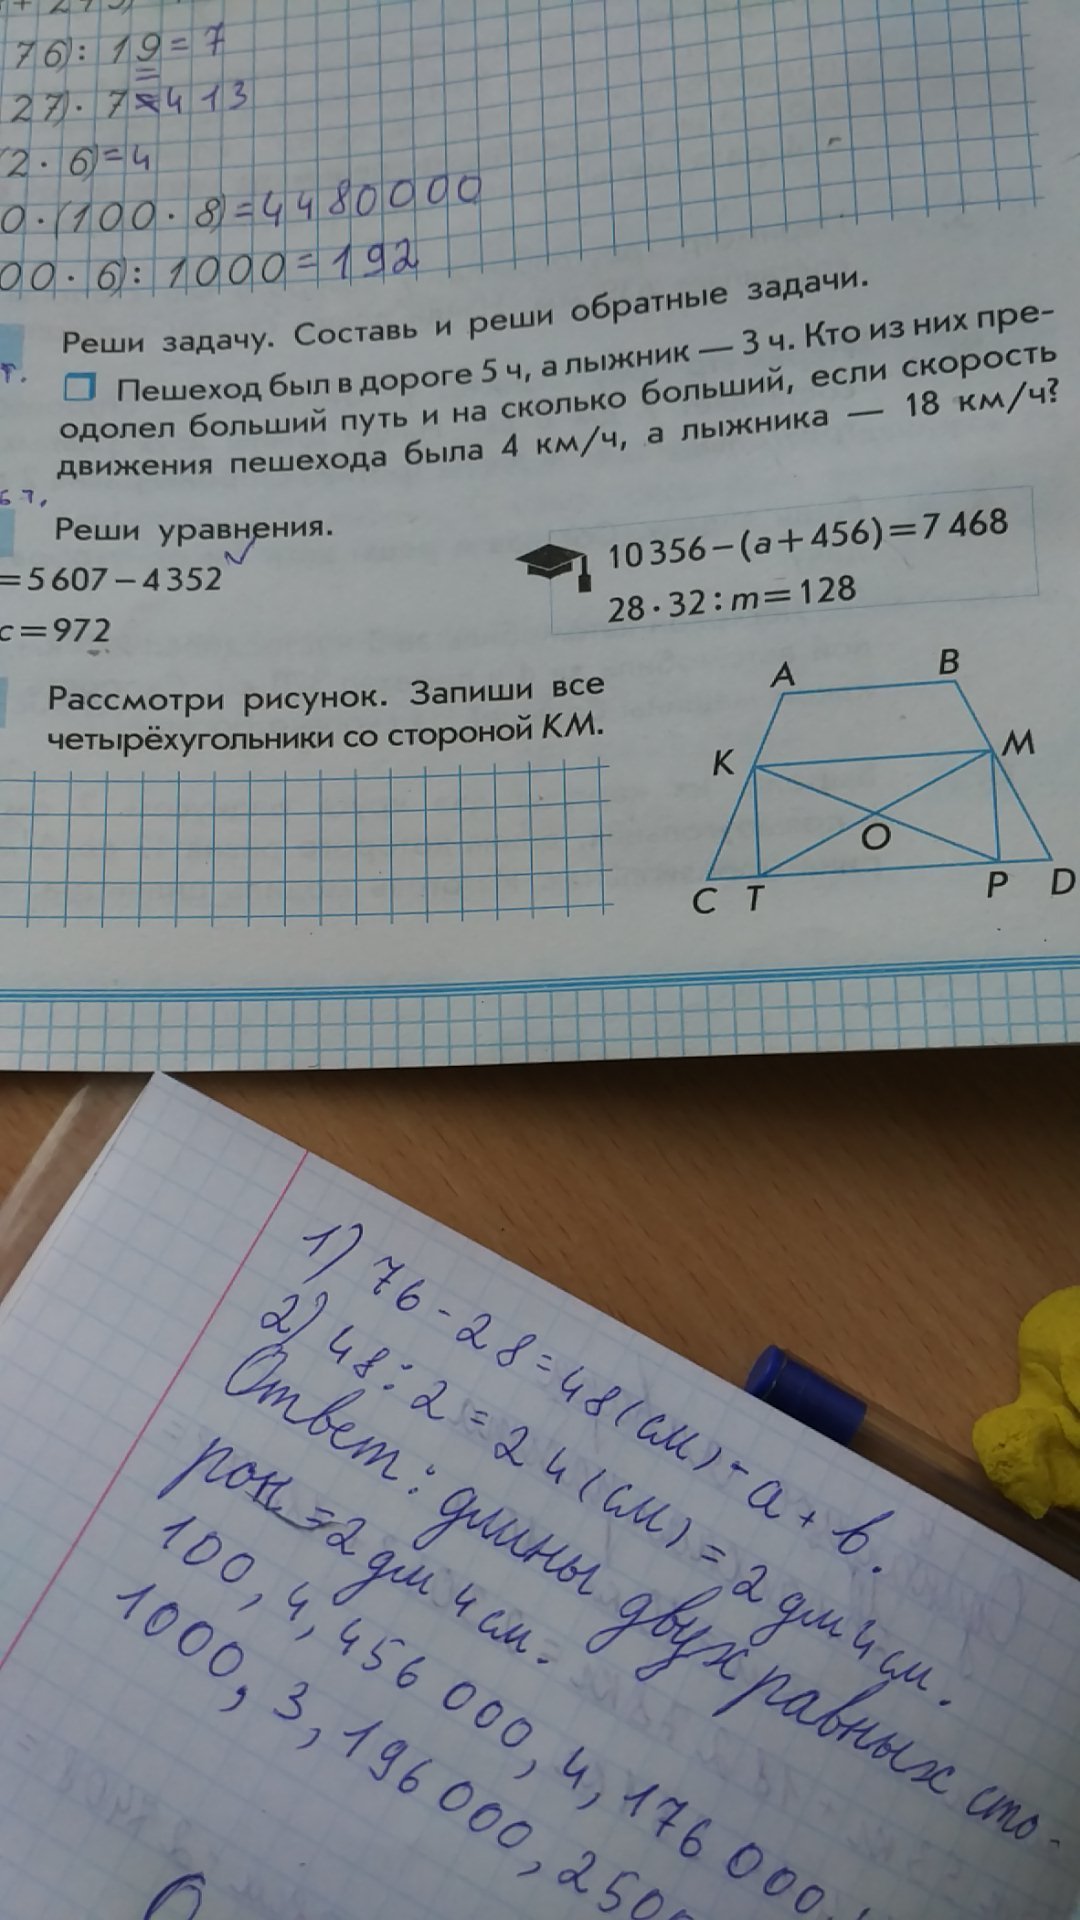 76) : 19 = 7
27) · 7 = 413
(2 · 6) = 4
0 · (100 · 8) = 4480000
00 · 6) : 1000 = 192
Реши задачу. Составь и реши обратные задачи.
Пешеход был в дороге 5 ч, а лыжник — 3 ч. Кто из них пре-
одолел больший путь и на сколько больший, если скорость
движения пешехода была 4 км/ч, а лыжника — 18 км/ч?
Реши уравнения.
=5 607 – 4 352
c = 972
10 356 – (a + 456) = 7 468
28 · 32 : m = 128
Рассмотри рисунок. Запиши все
четырёхугольники со стороной KM.
A B
K M
O
C T P D
1) 76 - 28 = 48 (см) - a + b.
2) 48 : 2 = 24 (см) = 2 дм 4 см.
Ответ: длины двух равных сто-
рон = 2 дм 4 см.
100, 4, 456 000, 4, 176 000,
1000, 3, 196 000, 250